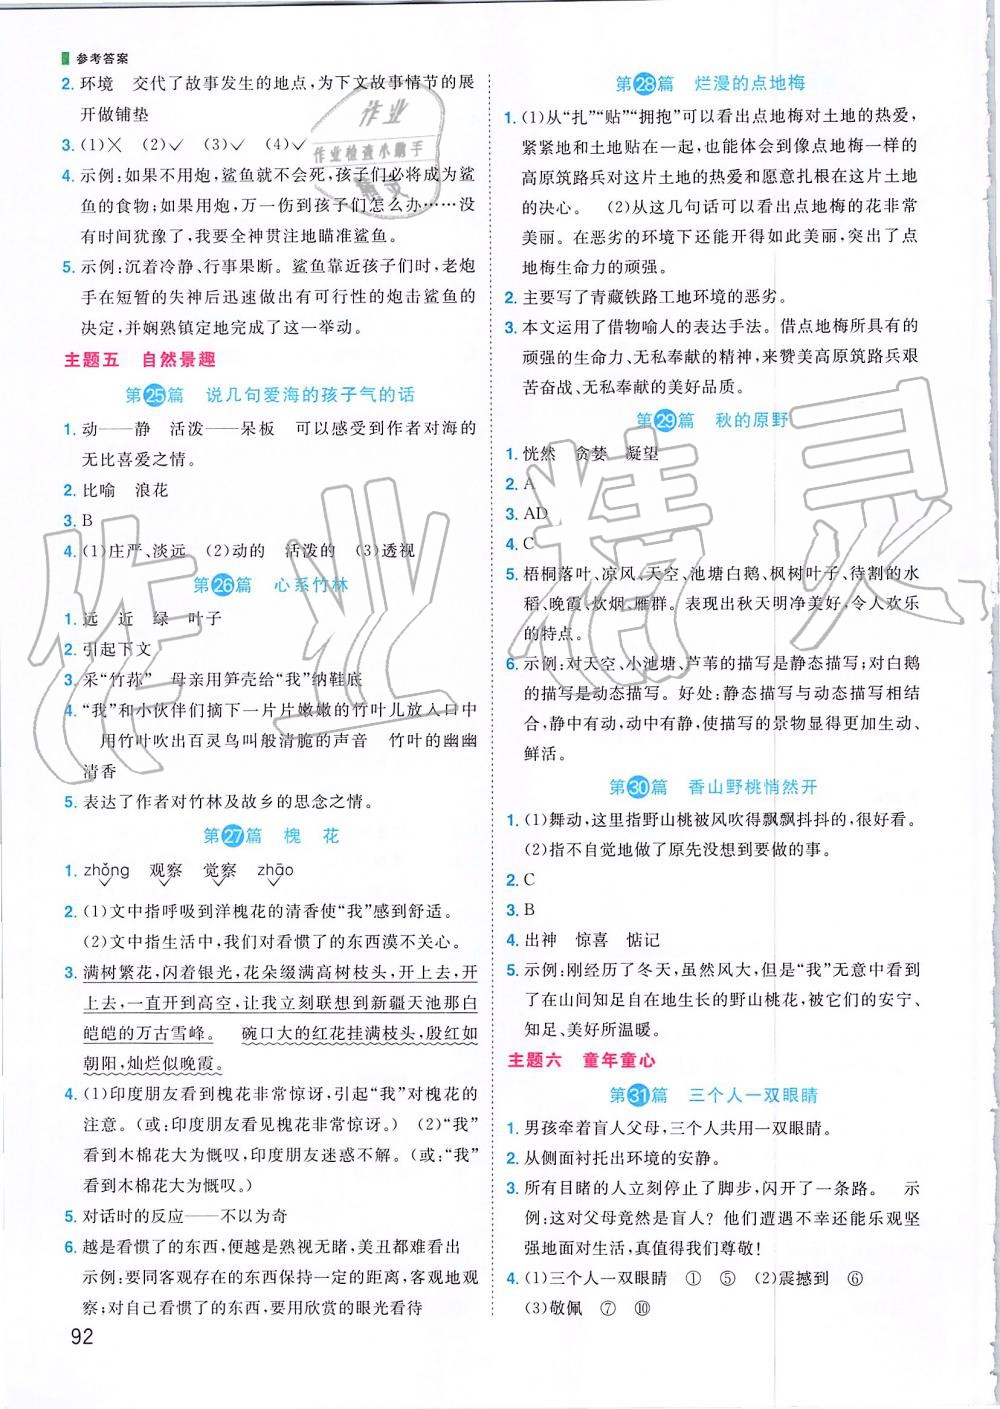 参考答案
2. 环境　交代了故事发生的地点,为下文故事情节的展
开做铺垫
3. (1)╳　(2)✓　(3)✓　(4)✓
4. 示例:如果不用炮,鲨鱼就不会死,孩子们必将成为鲨
鱼的食物;如果用炮,万一伤到孩子们怎么办……没
有时间犹豫了,我要全神贯注地瞄准鲨鱼。
5. 示例:沉着冷静、行事果断。鲨鱼靠近孩子们时,老炮
手在短暂的失神后迅速做出有可行性的炮击鲨鱼的
决定,并娴熟镇定地完成了这一举动。
主题五　自然景趣
第25篇　说几句爱海的孩子气的话
1. 动——静　活泼——呆板　可以感受到作者对海的
无比喜爱之情。
2. 比喻　浪花
3. B
4. (1)庄严、淡远　(2)动的　活泼的　(3)透视
第26篇　心系竹林
1. 远　近　绿　叶子
2. 引起下文
3. 采“竹荪”　母亲用笋壳给“我”纳鞋底
4. “我”和小伙伴们摘下一片片嫩嫩的竹叶儿放入口中
用竹叶吹出百灵鸟叫般清脆的声音　竹叶的幽幽
清香
5. 表达了作者对竹林及故乡的思念之情。
第27篇　槐　花
1. zhǒng　观察　觉察　zhāo
2. (1)文中指呼吸到洋槐花的清香使“我”感到舒适。
(2)文中指生活中,我们对看惯了的东西漠不关心。
3. 满树繁花,闪着银光,花朵缀满高树枝头,开上去,开
上去,一直开到高空,让我立刻联想到新疆天池那白
皑皑的万古雪峰。　碗口大的红花挂满枝头,殷红如
朝阳,灿烂似晚霞。
4. (1)印度朋友看到槐花非常惊讶,引起“我”对槐花的
注意。(或:印度朋友看到槐花非常惊讶。)　(2)“我”
看到木棉花大为慨叹,印度朋友迷惑不解。(或:“我”
看到木棉花大为慨叹。)
5. 对话时的反应——不以为奇
6. 越是看惯了的东西,便越是熟视无睹,美丑都难看出
示例:要同客观存在的东西保持一定的距离,客观地观
察;对自己看惯了的东西,要用欣赏的眼光看待
92
第28篇　烂漫的点地梅
1. (1)从“扎”“贴”“拥抱”可以看出点地梅对土地的热爱,
紧紧地和土地贴在一起,也能看出像点地梅一样的
高原筑路兵对这片土地的热爱和愿意扎根在这片土地
的决心。　(2)从这几句话可以看出点地梅的花非常
美丽。在恶劣的环境下还能开得如此美丽,突出了点
地梅生命力的顽强。
2. 主要写了青藏铁路工地环境的恶劣。
3. 本文运用了借物喻人的表达手法。借点地梅所具有的
顽强的生命力、无私奉献的精神,来赞美高原筑路兵艰
苦奋战、无私奉献的美好品质。
第29篇　秋的原野
1. 恍然　贪婪　凝望
2. A
3. AD
4. C
5. 梧桐落叶、凉风、天空、池塘白鹅、枫树叶子、待割的水
稻、晚霞、炊烟、雁群。表现出秋天明净美好,令人欢乐
的特点。
6. 示例:对天空、小池塘、芦苇的描写是静态描写;对白鹅
的描写是动态描写。好处:静态描写与动态描写相结
合,静中有动,动中有静,使描写的景物显得更加生动、
鲜活。
第30篇　香山野桃悄然开
1. (1)舞动,这里指野山桃被风吹得飘飘抖抖的,很好看。
(2)指不自觉地做了原先没想到要做的动作。
2. C
3. B
4. 出神　惊喜　惦记
5. 示例:刚经历了冬天,虽然风大,但是“我”无意中看到
了在山间知足自在地生长的野山桃花,被它们的安宁、
知足、美好所温暖。
主题六　童年童心
第31篇　三个人一双眼睛
1. 男孩牵着盲人父母,三个人共用一双眼睛。
2. 从侧面衬托出环境的安静。
3. 所有目睹的人立刻停止了脚步,闪开了一条路。　示
例:这对父母竟然是盲人?他们遭遇不幸还能乐观坚
强地面对生活,真值得我们尊敬!
4. (1)三个人一双眼睛　①　⑤　(2)震撼到　⑥
(3)敬佩　⑦　⑩
作业
作业检查小帮手
精灵
作业精灵